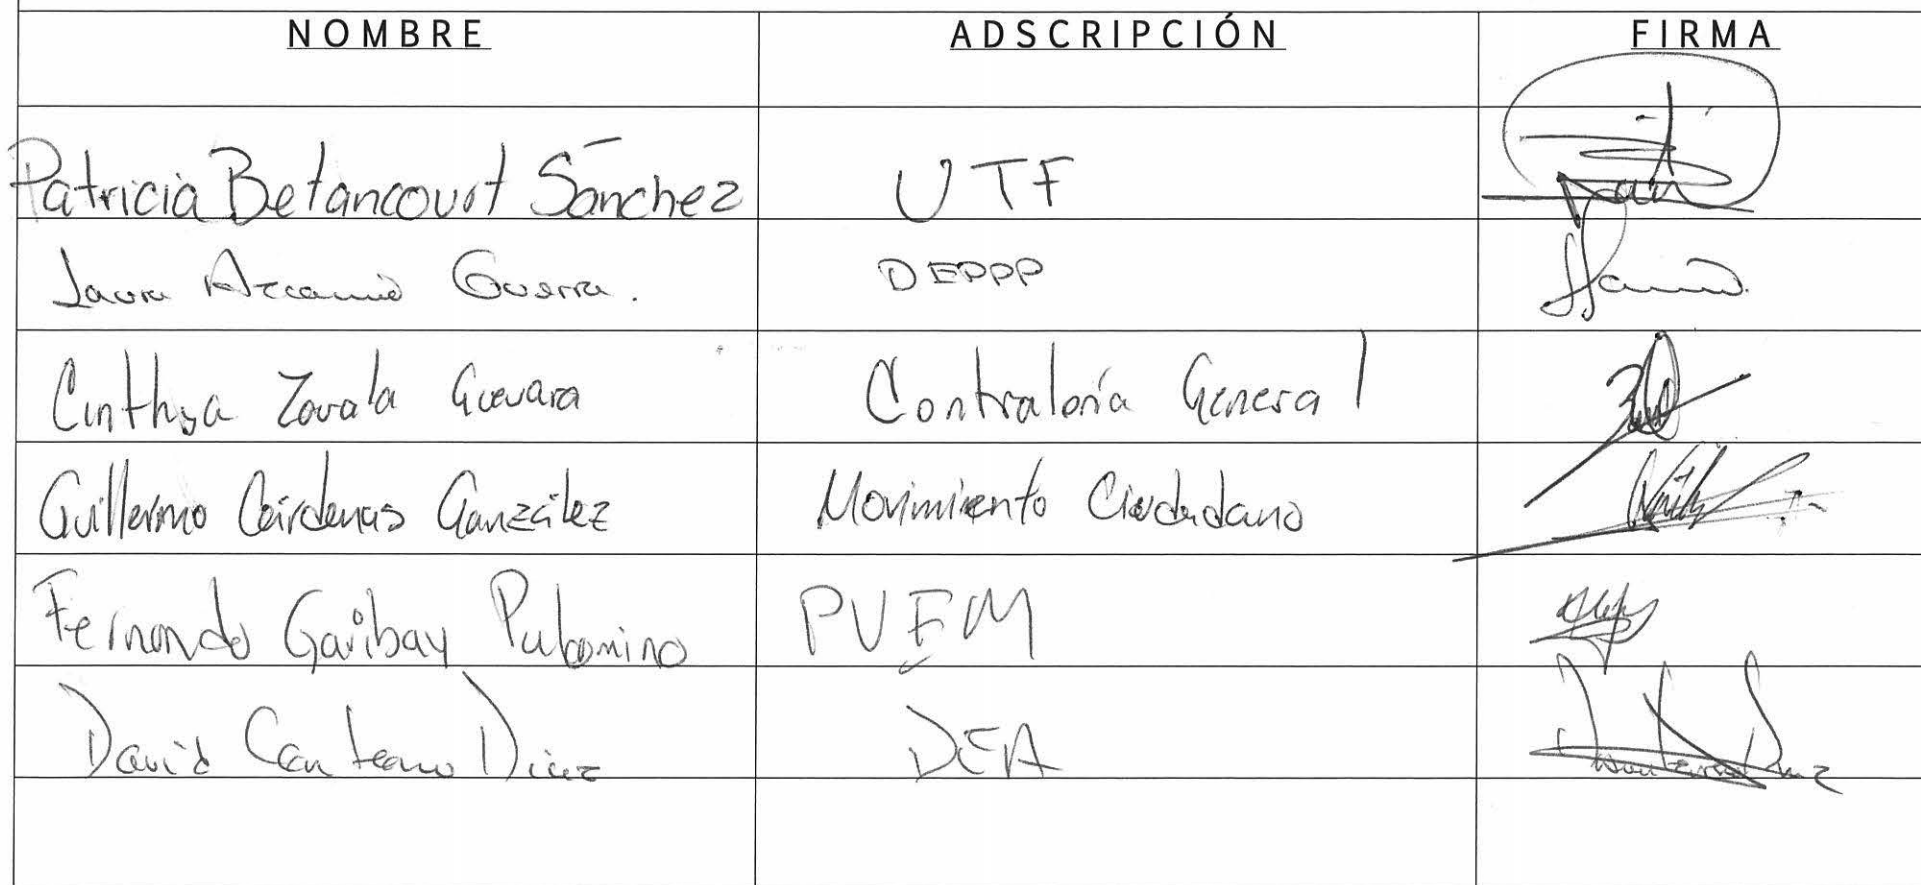 NOMBRE ADSCRIPCIÓN FIRMA
Patricia Betancourt Sánchez UTF
Laura Guerra. DEPPP
Cinthya Zavala Guevara Contraloría General
Guillermo Cárdenas González Movimiento Ciudadano
Fernando Garibay Palomino PVEM
David Díaz DEA